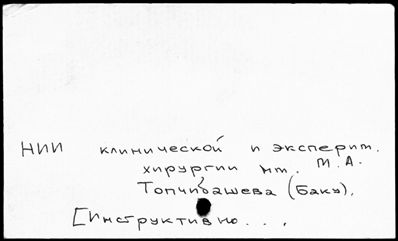 НИИ клинической и эксперим.
хирургии им. М.А.
Топчибашева (Баку).
[Инструктивно...